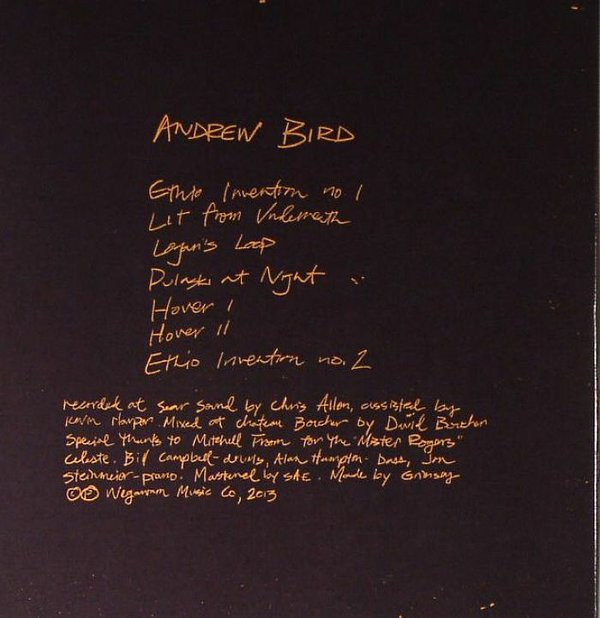 ANDREW BIRD
Ethio Invention no 1
Lit from Underneath
Logan's Loop
Pulaski at Night
Hover I
Hover II
Ethio Invention no. 2
recorded at Sear Sound by Chris Allen, assisted by
Kevin Harper. Mixed at Chateau Boucher by David Boucher
Special thanks to Mitchell Froom for the "Mister Rogers"
Celeste. Bill Campbell-drums, Alan Hampton-bass, Jon
Steinmeier-piano. Mastered by SAE. Made by Grimsey
©℗ Wegawam Music Co, 2013